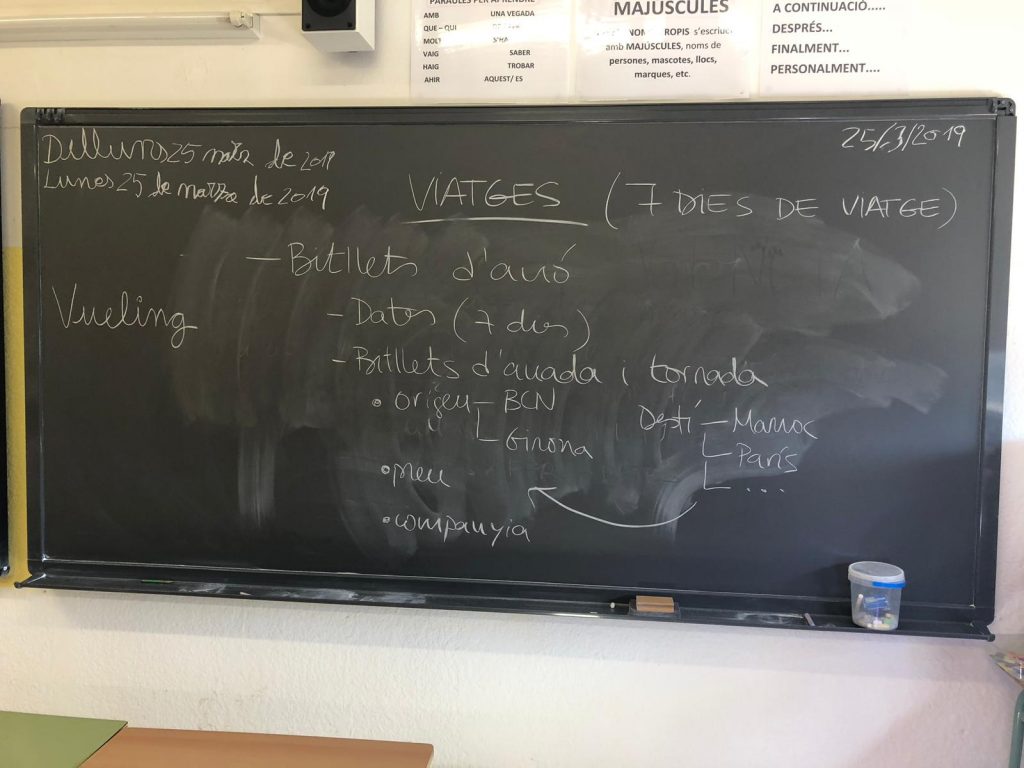 PARAULES PER APRENDRE
AMB UNA VEGADA
QUE – QUI
MOLT
VAIG SABER
HAIG TROBAR
AHIR AQUEST/ ES
MAJÚSCULES
NOM ROPIS s'escriu
amb MAJÚSCULES, noms de
persones, mascotes, llocs,
marques, etc.
A CONTINUACIÓ.....
DESPRÉS...
FINALMENT...
PERSONALMENT....
Dilluns 25 març de 2019
Lunes 25 de marzo de 2019
25/3/2019
VIATGES (7 DIES DE VIATGE)
- Bitllets d'avió
Vueling
- Dates (7 dies)
- Bitllets d'anada i tornada
• origen - BCN
Girona
Destí - Marroc
París
...
• preu
• companyia